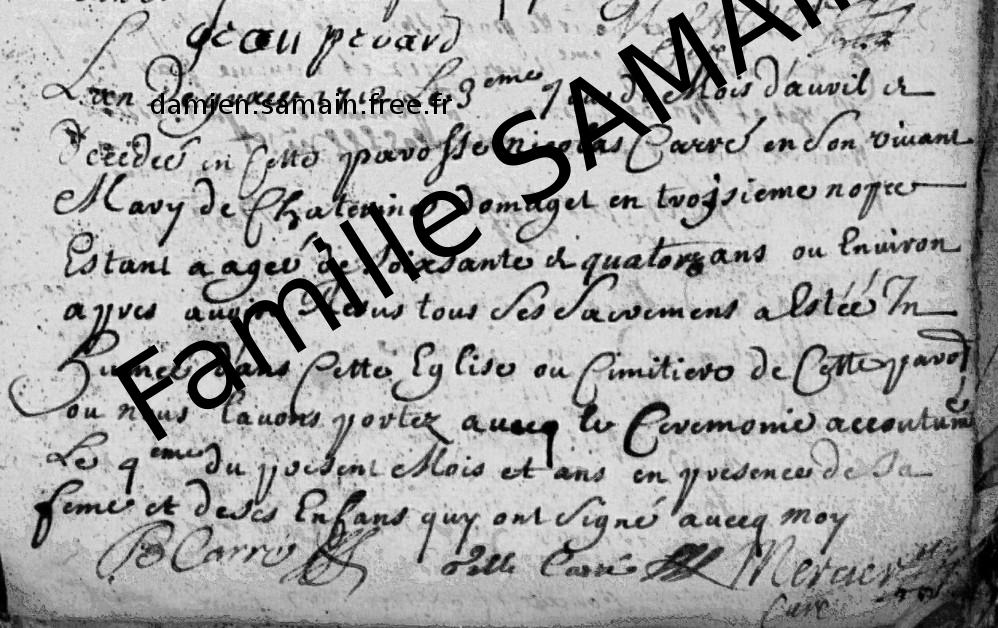 Jean prevard
L'an De grace 1712 Le 3eme Jour du Mois d'avvil er
damien.samain.free.fr
Decedeé en Cette parosse Nicolas Carré en Son vivant
Mary de Chaterine domaget en troisieme nopce
Estant aageé de Soixsante et quatorze ans ou Environ
appres avoir Resus tous Ses Sacremens a Estéé In
humee dans Cette Eglise ou Cimitiere de Cette paroisse
ou nous lauons portez aueeq le Ceremonie accoutumé
Le 4eme du present Mois et ans en presence de Sa
feme et deses Enfans quy ont Signé aueeq moy
B Carré gille Carré Mercier
Curé
Famille SAMAIN